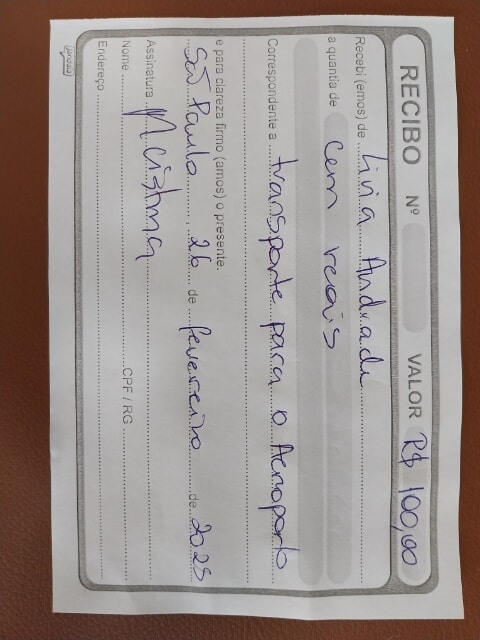 RECIBO Nº VALOR R$ 100,00
Recebi (emos) de Livia Andrade
a quantia de cem reais
Correspondente a transporte para o Aeroporto
e para clareza firmo (amos) o presente.
São Paulo 26 de fevereiro de 2025
Assinatura
Nome CPF / RG
Endereço